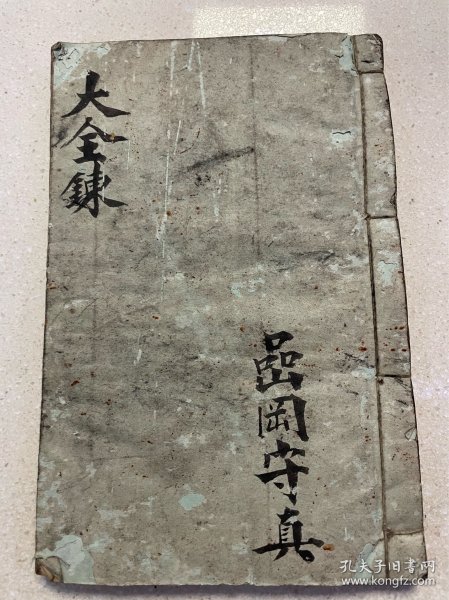 大全鍊
嵒岡守真
孔夫子旧书网
www.kongfz.com